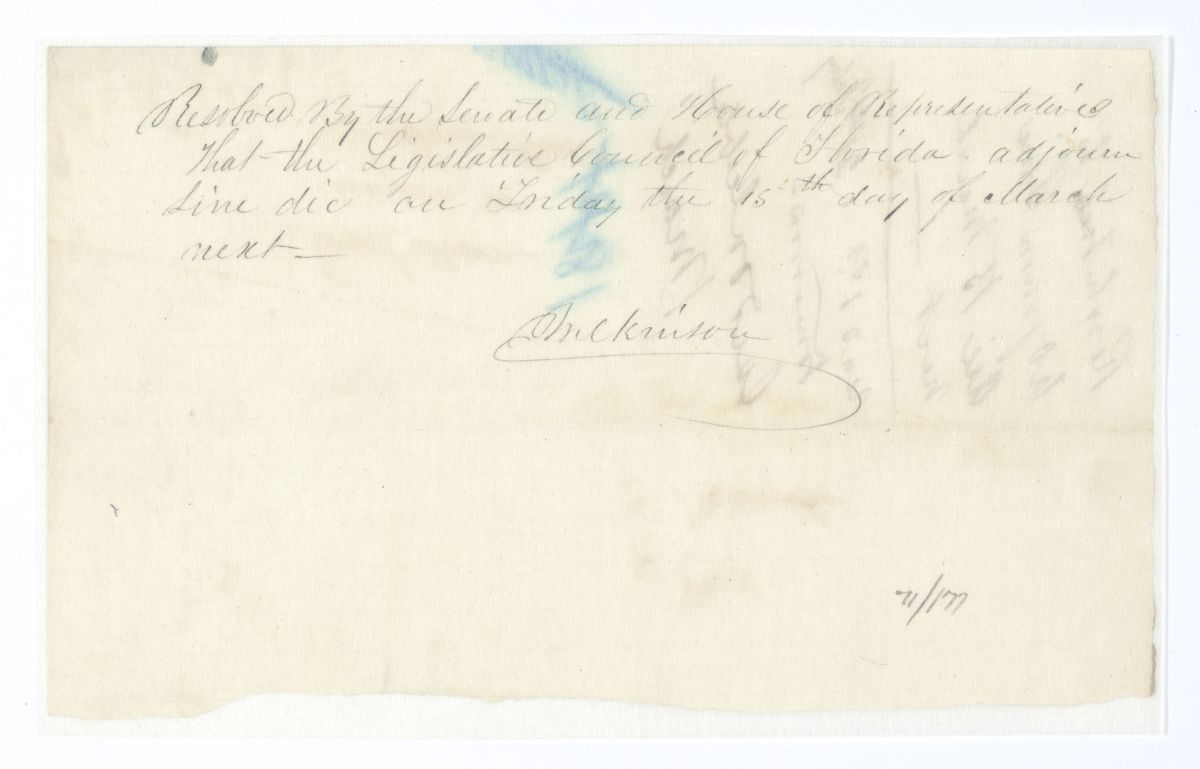 Resolved By the Senate and House of Representatives
that the Legislative Council of Florida adjourn
sine die on Friday the 15th day of March
next
Wilkinson
71/177